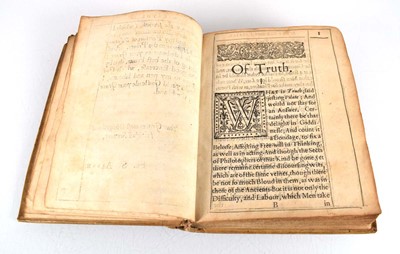 1
Of Truth.
I.
WHAT is Truth; said
jesting Pilate; And
would not stay for
an Answer. Cer-
tainly there be that
delight in Giddi-
nesse; And count it
a Bondage, to fix a
Beleefe; Affecting Free-will in Thinking,
as well as in Acting. And though the Sects
of Philosophers of that Kind be gone, yet
there remaine certaine discoursing Wits,
which are of the same veines, though there
be not so much Bloud in them, as was in
those of the Ancients. But it is not only the
Difficulty, and Labour, which Men take
B in